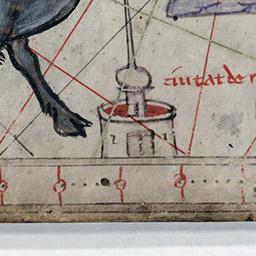 ciutat de